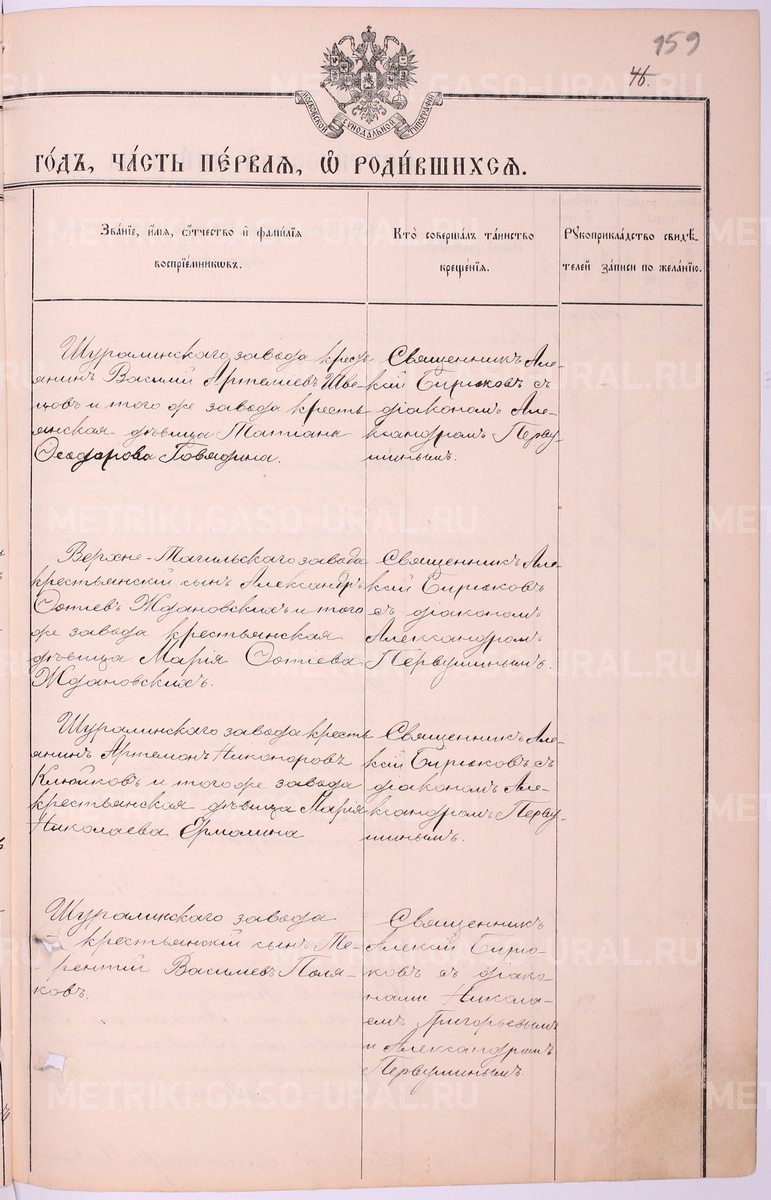 159
46.
МОСКОВСКОЙ СѴНОДАЛЬНОЙ ТИПОГРАФІИ
го́дъ, ча́сть пе́рвая, ѡ роди́вшихсѧ.
Зва́нїе, и́мѧ, ѻ҆́тчество и҆ фами́лїѧ
воспрїе́мникѡвъ.
Кто̀ соверша́лъ та́инство
креще́нїѧ.
Рꙋкоприкла́дство свидѣ́-
телей за́писи по жела́нїю.
Шуралинскаго завода кресть
янинъ Василій Артемиевъ Шве-
цовъ и того же завода кресть
янская дѣвица Татіана
Ѳеодорова Говядина.
Священникъ Але-
ксій Бирюковъ съ
діакономъ Але-
ксандромъ Перву-
шинымъ.
Верхне-Тагильскаго завода
крестьянскій сынъ Александръ
Фотіевъ Ждановскихъ и того
же завода крестьянская
дѣвица Марія Фотіева
Ждановскихъ.
Священникъ Але-
ксій Бирюковъ
съ діакономъ
Александромъ
Первушинымъ.
Шуралинскаго завода кресть
янинъ Артемонъ Никаноровъ
Клюйковъ и того же завода
крестьянская дѣвица Марія
Николаева Ермолина
Священникъ Але-
ксій Бирюковъ съ
діакономъ Але-
ксандромъ Перву-
шинымъ.
Шуралинскаго завода
крестьянскій сынъ Те-
рентій Василіевъ Поля-
ковъ.
Священникъ
Алексій Бирю-
ковъ съ діако-
нами Никола-
емъ Григорьевымъ
и Александромъ
Первушинымъ.
METRIKI.GASO-URAL.RU